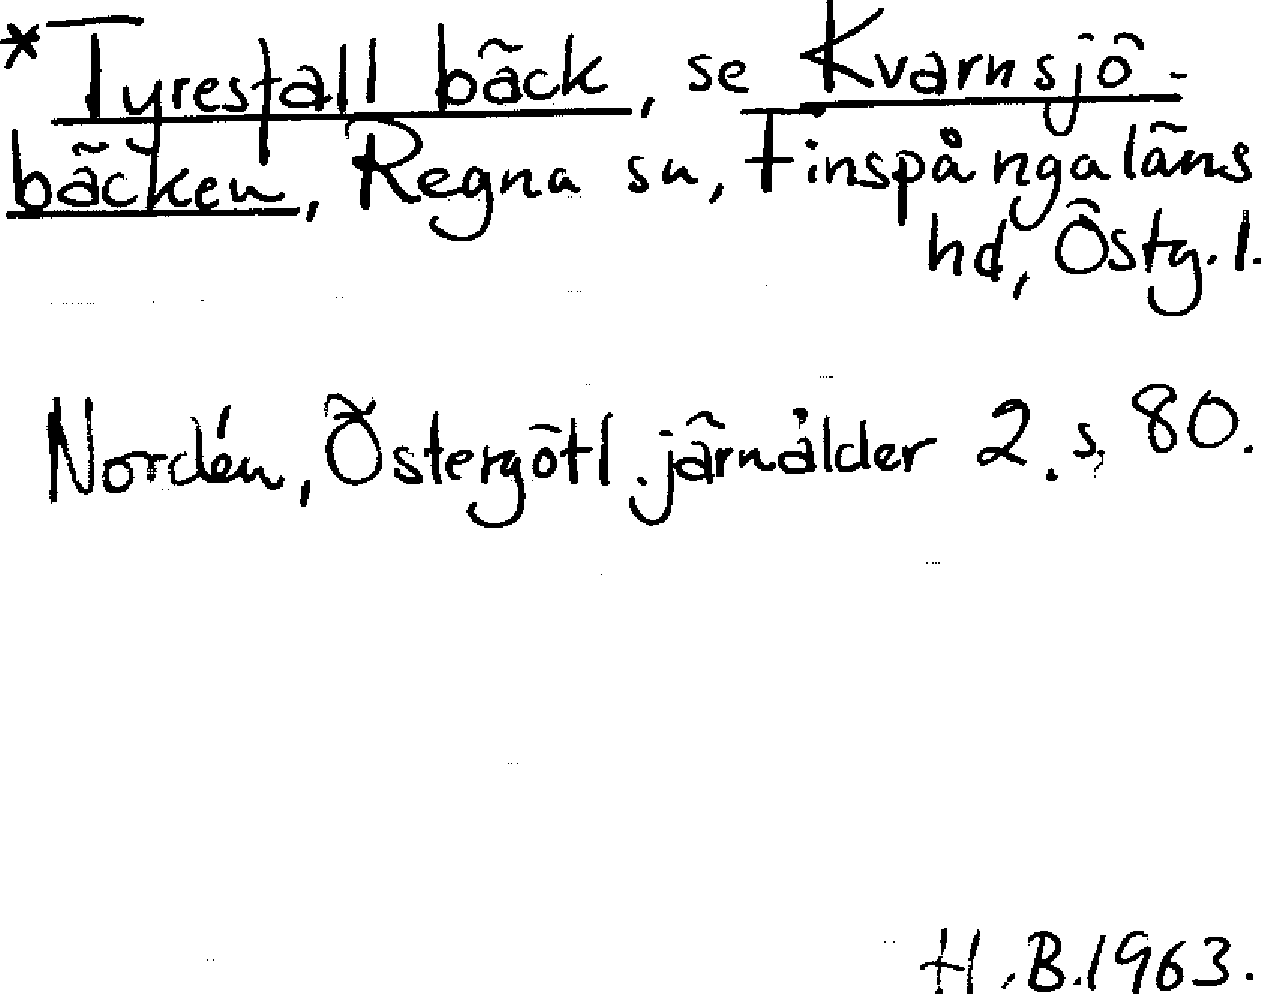 *Tyresfall bäck, se Kvarnsjö-
bäcken, Regna sn, Finspångaläns
hd, Östg. l.
Nordén, Östergötl. järnålder 2. s. 80.
H.B. 1963.